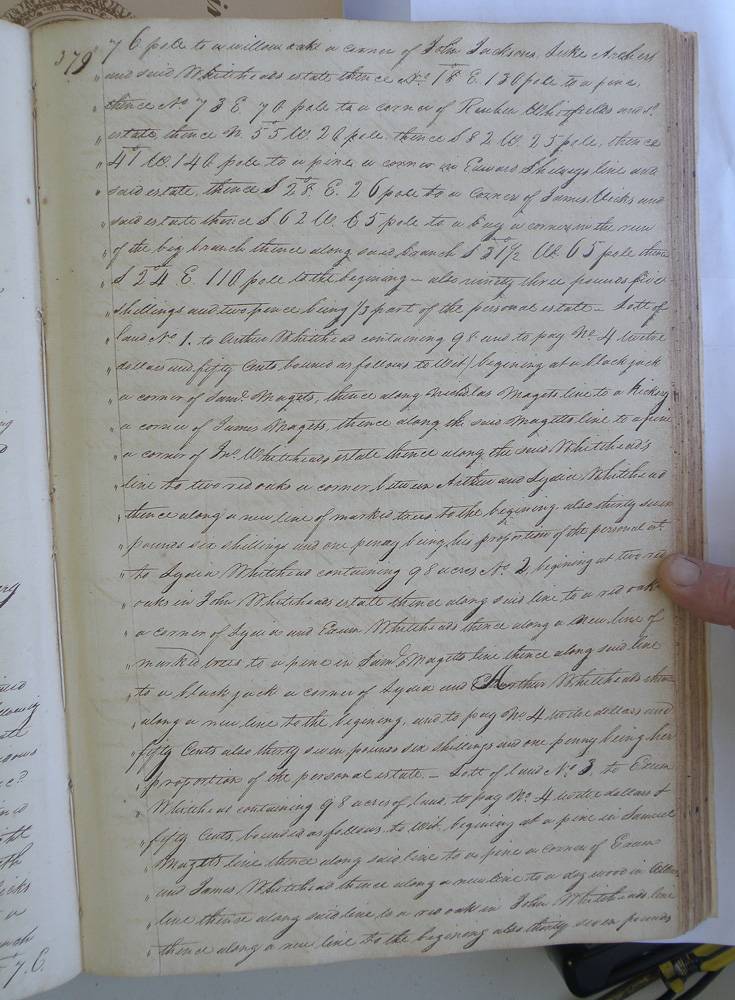 379
76 pole to a willow oake a corner of John Jacksons, Luke Archers
and said Whiteheads estate thence No. 18 E. 130 pole to a pine,
thence No 73 E 70 pole to a corner of Reuben Whitfields and sd.
estate, thence N. 55 W. 20 pole, thence S 82 W. 25 pole, thence
41 W. 140 pole to a pine a corner in Edward line and
said estate, thence S 28. E. 26 pole to a corner of James Vicks and
said estate thence S 62 W. 65 pole to a bay a corner in the run
of the bay branch thence along said branch S 31 1/2 W. 65 pole thence
S 24 E 110 pole to the begining — also ninety three pounds five
shillings and two pence being 1/3 part of the personal estate — Lott of
land No. 1. to Arthur Whitehead containing 98 and to pay No. 4 twelve
dollars and fifty Cents, bound as follows to Wit, begining at a black jack
a corner of Saml. Magets, thence along Nicholas Magets line to a Hickory
a corner of James Magets, thence along the said Magetts line to a pine
a corner of Jno. Whiteheads estate thence along the said Whitehead's
line to two red oaks a corner between Arthur and Lydia Whitehead
thence along a new line of marked trees to the begining also thirty seven
pounds six shillings and one penny being his proportion of the personal est.
to Lydia Whitehead containing 98 acres No. 2, begining at two red
oaks in John Whiteheads estate thence along said line to a red oak
a corner of Lydia and Exum Whiteheads thence along a new line of
marked trees to a pine in Saml. Magetts line thence along said line
to a black jack a corner of Lydia and Arthur Whiteheads thence
along a new line to the begining, and to pay No 4 twelve dollars and
fifty Cents also thirty seven pounds six shillings and one penny being her
proportion of the personal estate. — Lott of land No. 3, to Exum
Whitehead containing 98 acres of land, to pay No. 4 twelve dollars &
fifty Cents, bounded as follows, to Wit, begining at a pine in Samuel
Magets line thence along said line to a pine a corner of Exum
and James Whitehead thence along a new line to a dogwood in
line thence along said line to a red oak in John Whiteheads line
thence along a new line to the begining also thirty seven pounds